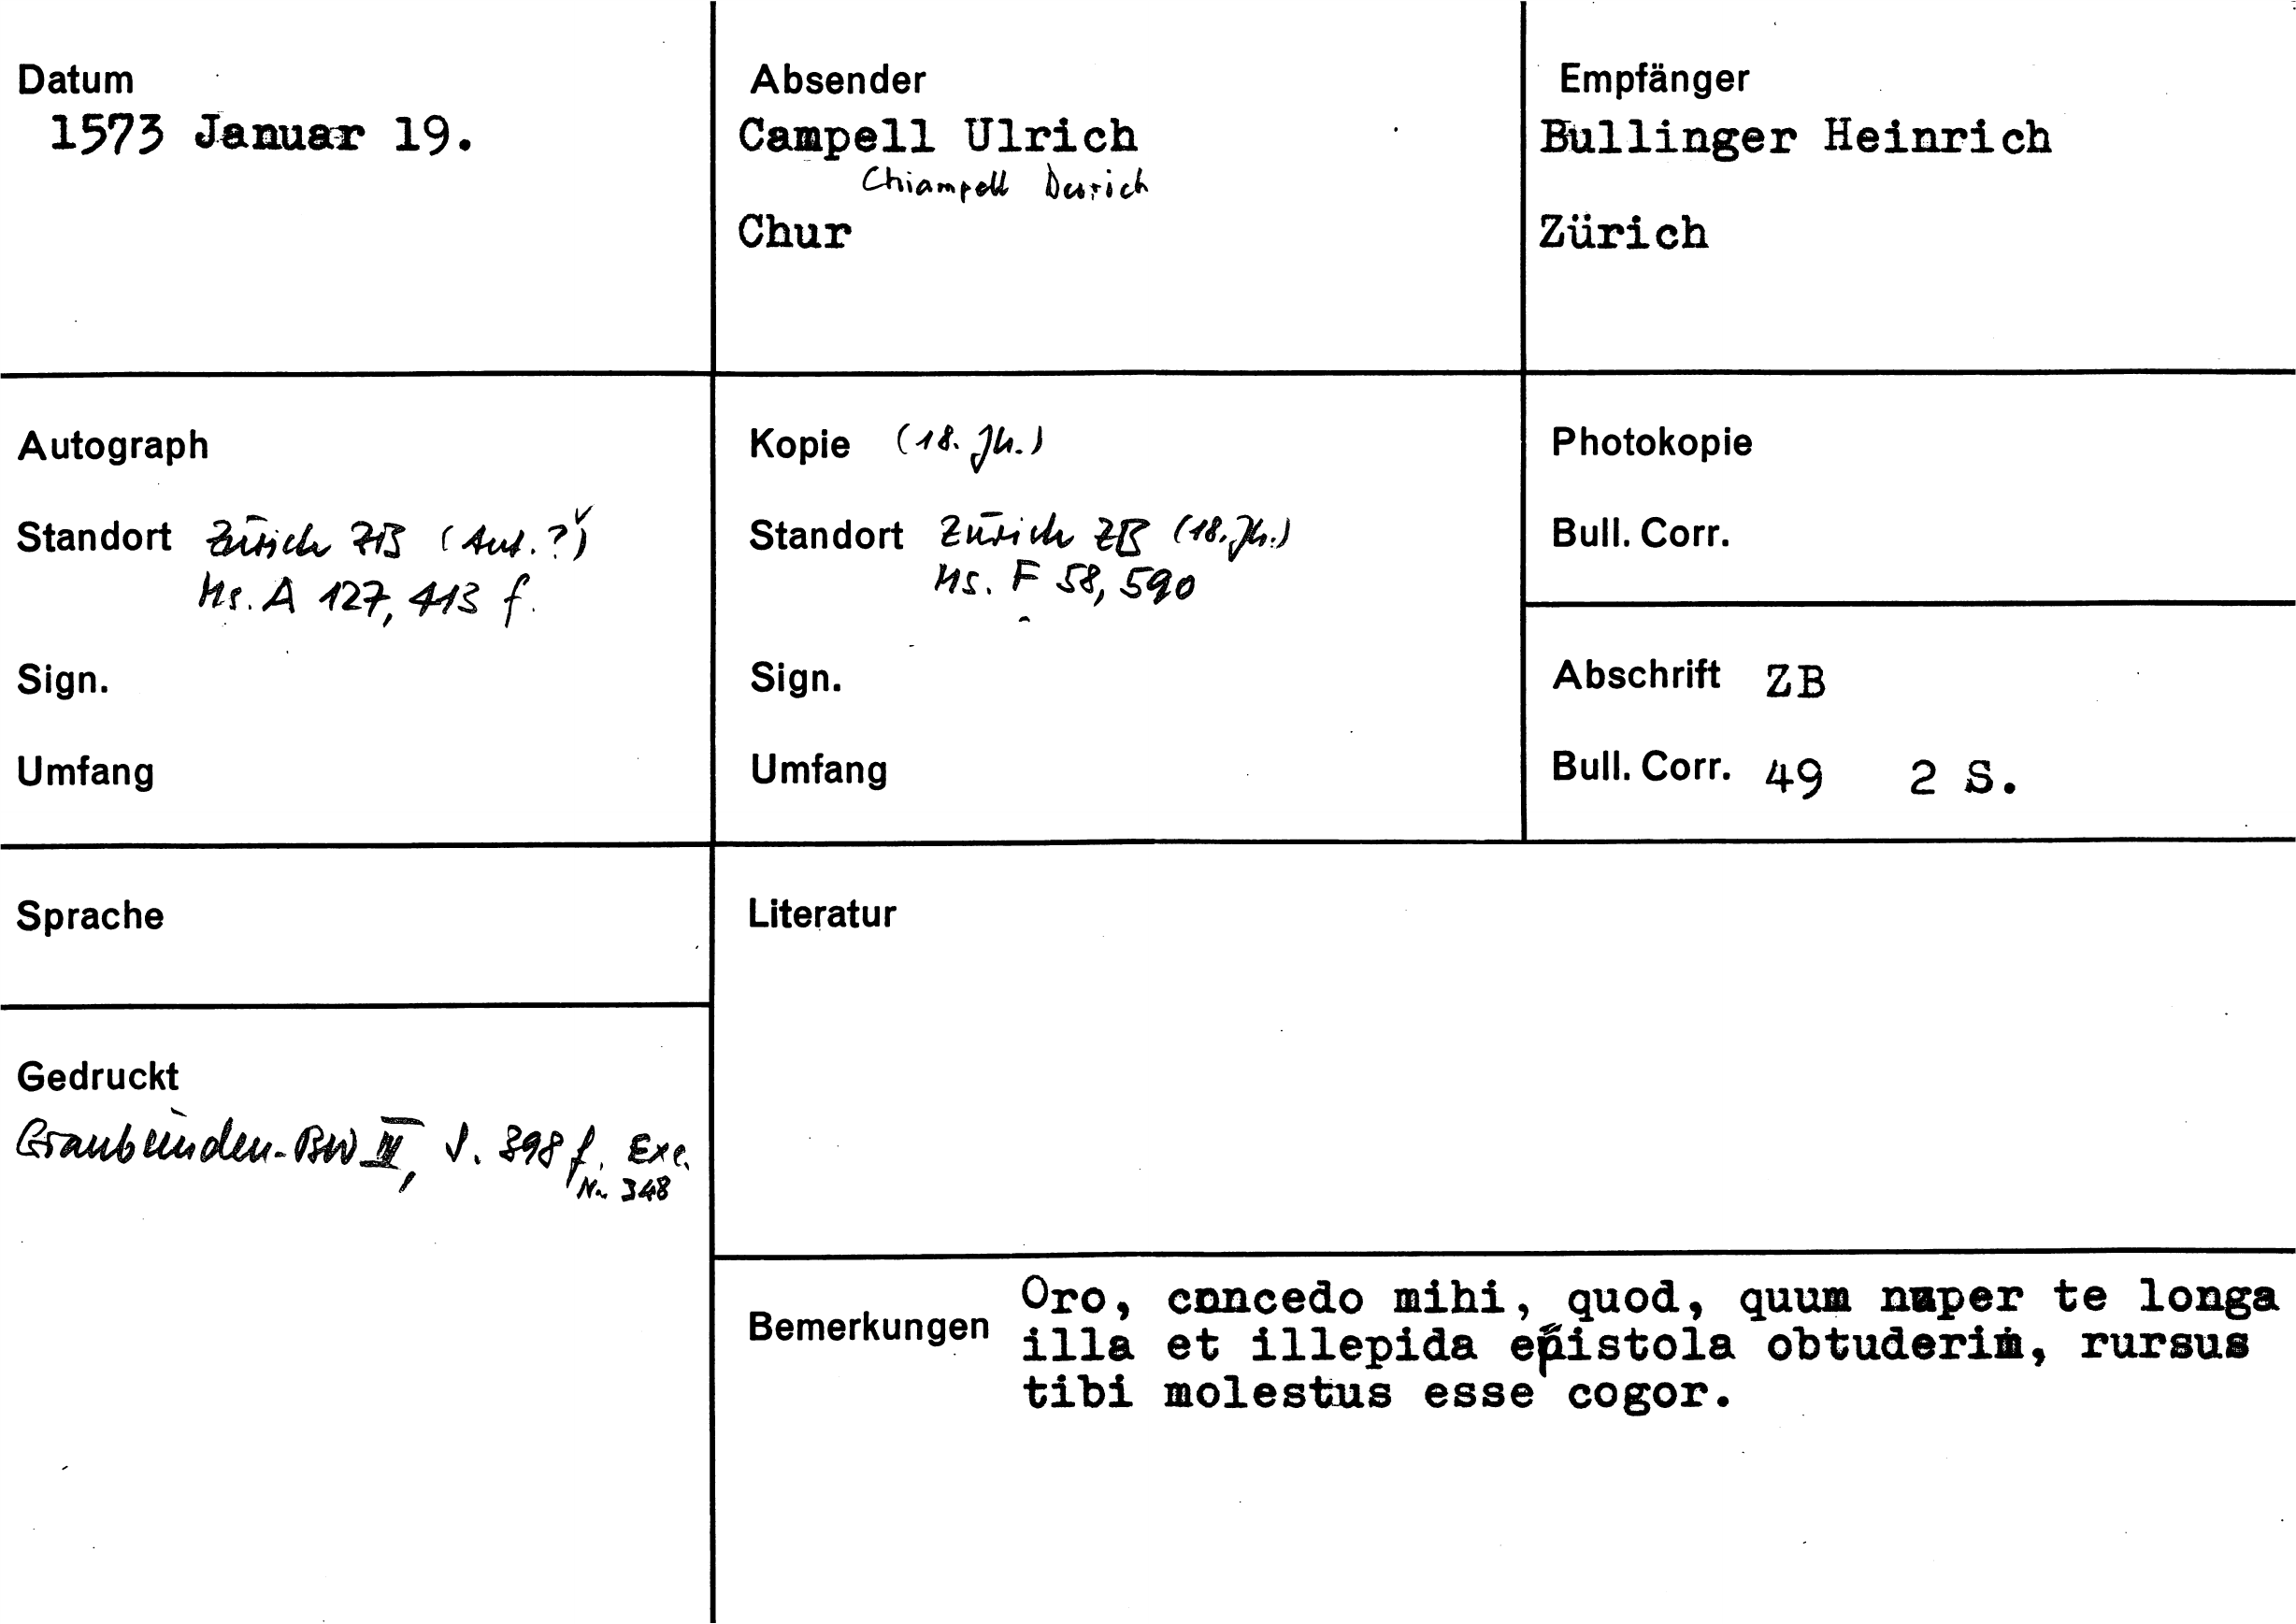 Datum
1573 Januar 19.
Absender
Campell Ulrich
Chiampell Durich
Chur
Empfänger
Bullinger Heinrich
Zürich
Autograph
Standort Zürich ZB (Aut.?)
Ms. A 127, 413 f.
Sign.
Umfang
Kopie (18. Jh.)
Standort Zürich ZB (18. Jh.)
Ms. F 58, 590
Sign.
Umfang
Photokopie
Bull. Corr.
Abschrift ZB
Bull. Corr. 49 2 S.
Sprache
Gedruckt
Graubünden-BW III, S. 398 f. Exc.
Nr. 348
Literatur
Bemerkungen
Oro, concedo mihi, quod, quum nuper te longa
illa et illepida epistola obtuderim, rursus
tibi molestus esse cogor.